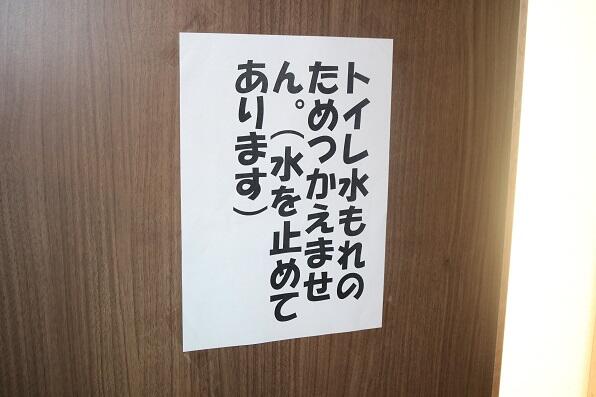 トイレ水もれの
ためつかえませ
ん。（水を止めて
あります）